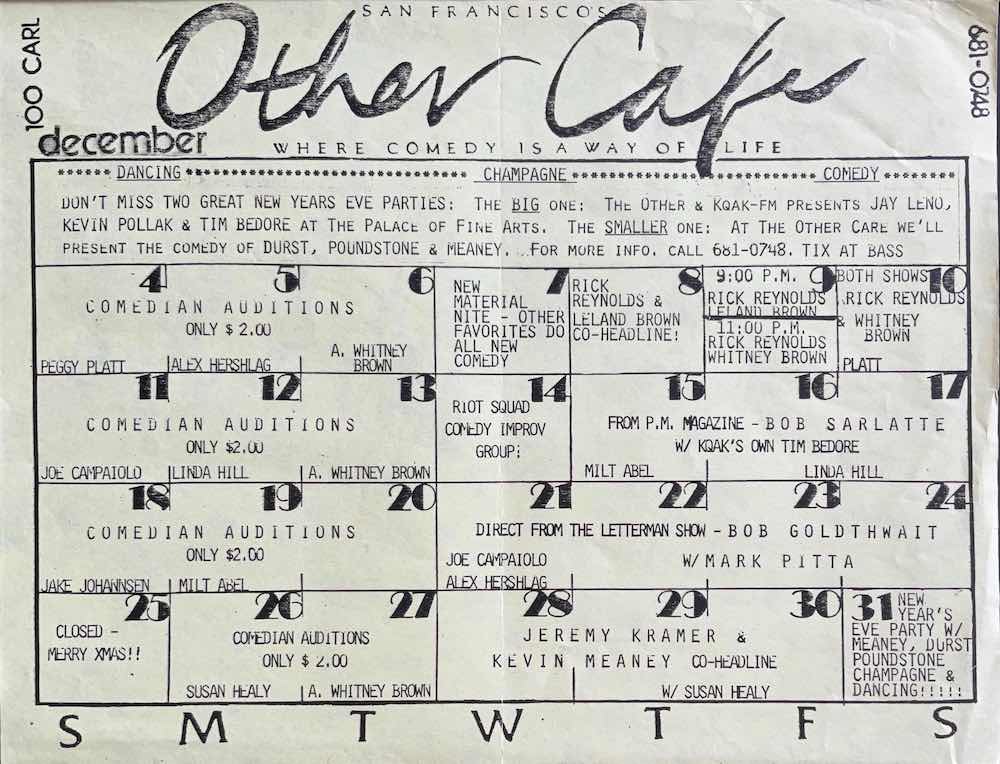 SAN FRANCISCO'S
Other Cafe
100 CARL
681-0748
december
WHERE COMEDY IS A WAY OF LIFE
****** DANCING ****************************** CHAMPAGNE *************************** COMEDY ********
DON'T MISS TWO GREAT NEW YEARS EVE PARTIES: THE BIG ONE: THE OTHER & KQAK-FM PRESENTS JAY LENO,
KEVIN POLLAK & TIM BEDORE AT THE PALACE OF FINE ARTS. THE SMALLER ONE: AT THE OTHER CARE WE'LL
PRESENT THE COMEDY OF DURST, POUNDSTONE & MEANEY. ..FOR MORE INFO. CALL 681-0748. TIX AT BASS
4 5 6
COMEDIAN AUDITIONS
ONLY $2.00
PEGGY PLATT
ALEX HERSHLAG
A. WHITNEY
BROWN
7
NEW
MATERIAL
NITE - OTHER
FAVORITES DO
ALL NEW
COMEDY
8
RICK
REYNOLDS &
LELAND BROWN
CO-HEADLINE!
9
9:00 P.M.
RICK REYNOLDS
LELAND BROWN
11:00 P.M.
RICK REYNOLDS
WHITNEY BROWN
10
BOTH SHOWS
RICK REYNOLDS
& WHITNEY
BROWN
PLATT
11 12 13
COMEDIAN AUDITIONS
ONLY $2.00
JOE CAMPAIOLO
LINDA HILL
A. WHITNEY BROWN
14
RIOT SQUAD
COMEDY IMPROV
GROUP!
15 16 17
FROM P.M. MAGAZINE - BOB SARLATTE
W/ KQAK'S OWN TIM BEDORE
MILT ABEL
LINDA HILL
18 19 20
COMEDIAN AUDITIONS
ONLY $2.00
JAKE JOHANNSEN
MILT ABEL
21 22 23 24
DIRECT FROM THE LETTERMAN SHOW - BOB GOLDTHWAIT
JOE CAMPAIOLO
W/MARK PITTA
ALEX HERSHLAG
25
CLOSED -
MERRY XMAS!!
26 27
COMEDIAN AUDITIONS
ONLY $2.00
SUSAN HEALY
A. WHITNEY BROWN
28 29 30
JEREMY KRAMER &
KEVIN MEANEY CO-HEADLINE
W/ SUSAN HEALY
31
NEW
YEAR'S
EVE PARTY W/
MEANEY, DURST
POUNDSTONE
CHAMPAGNE &
DANCING!!!!!
S M T W T F S